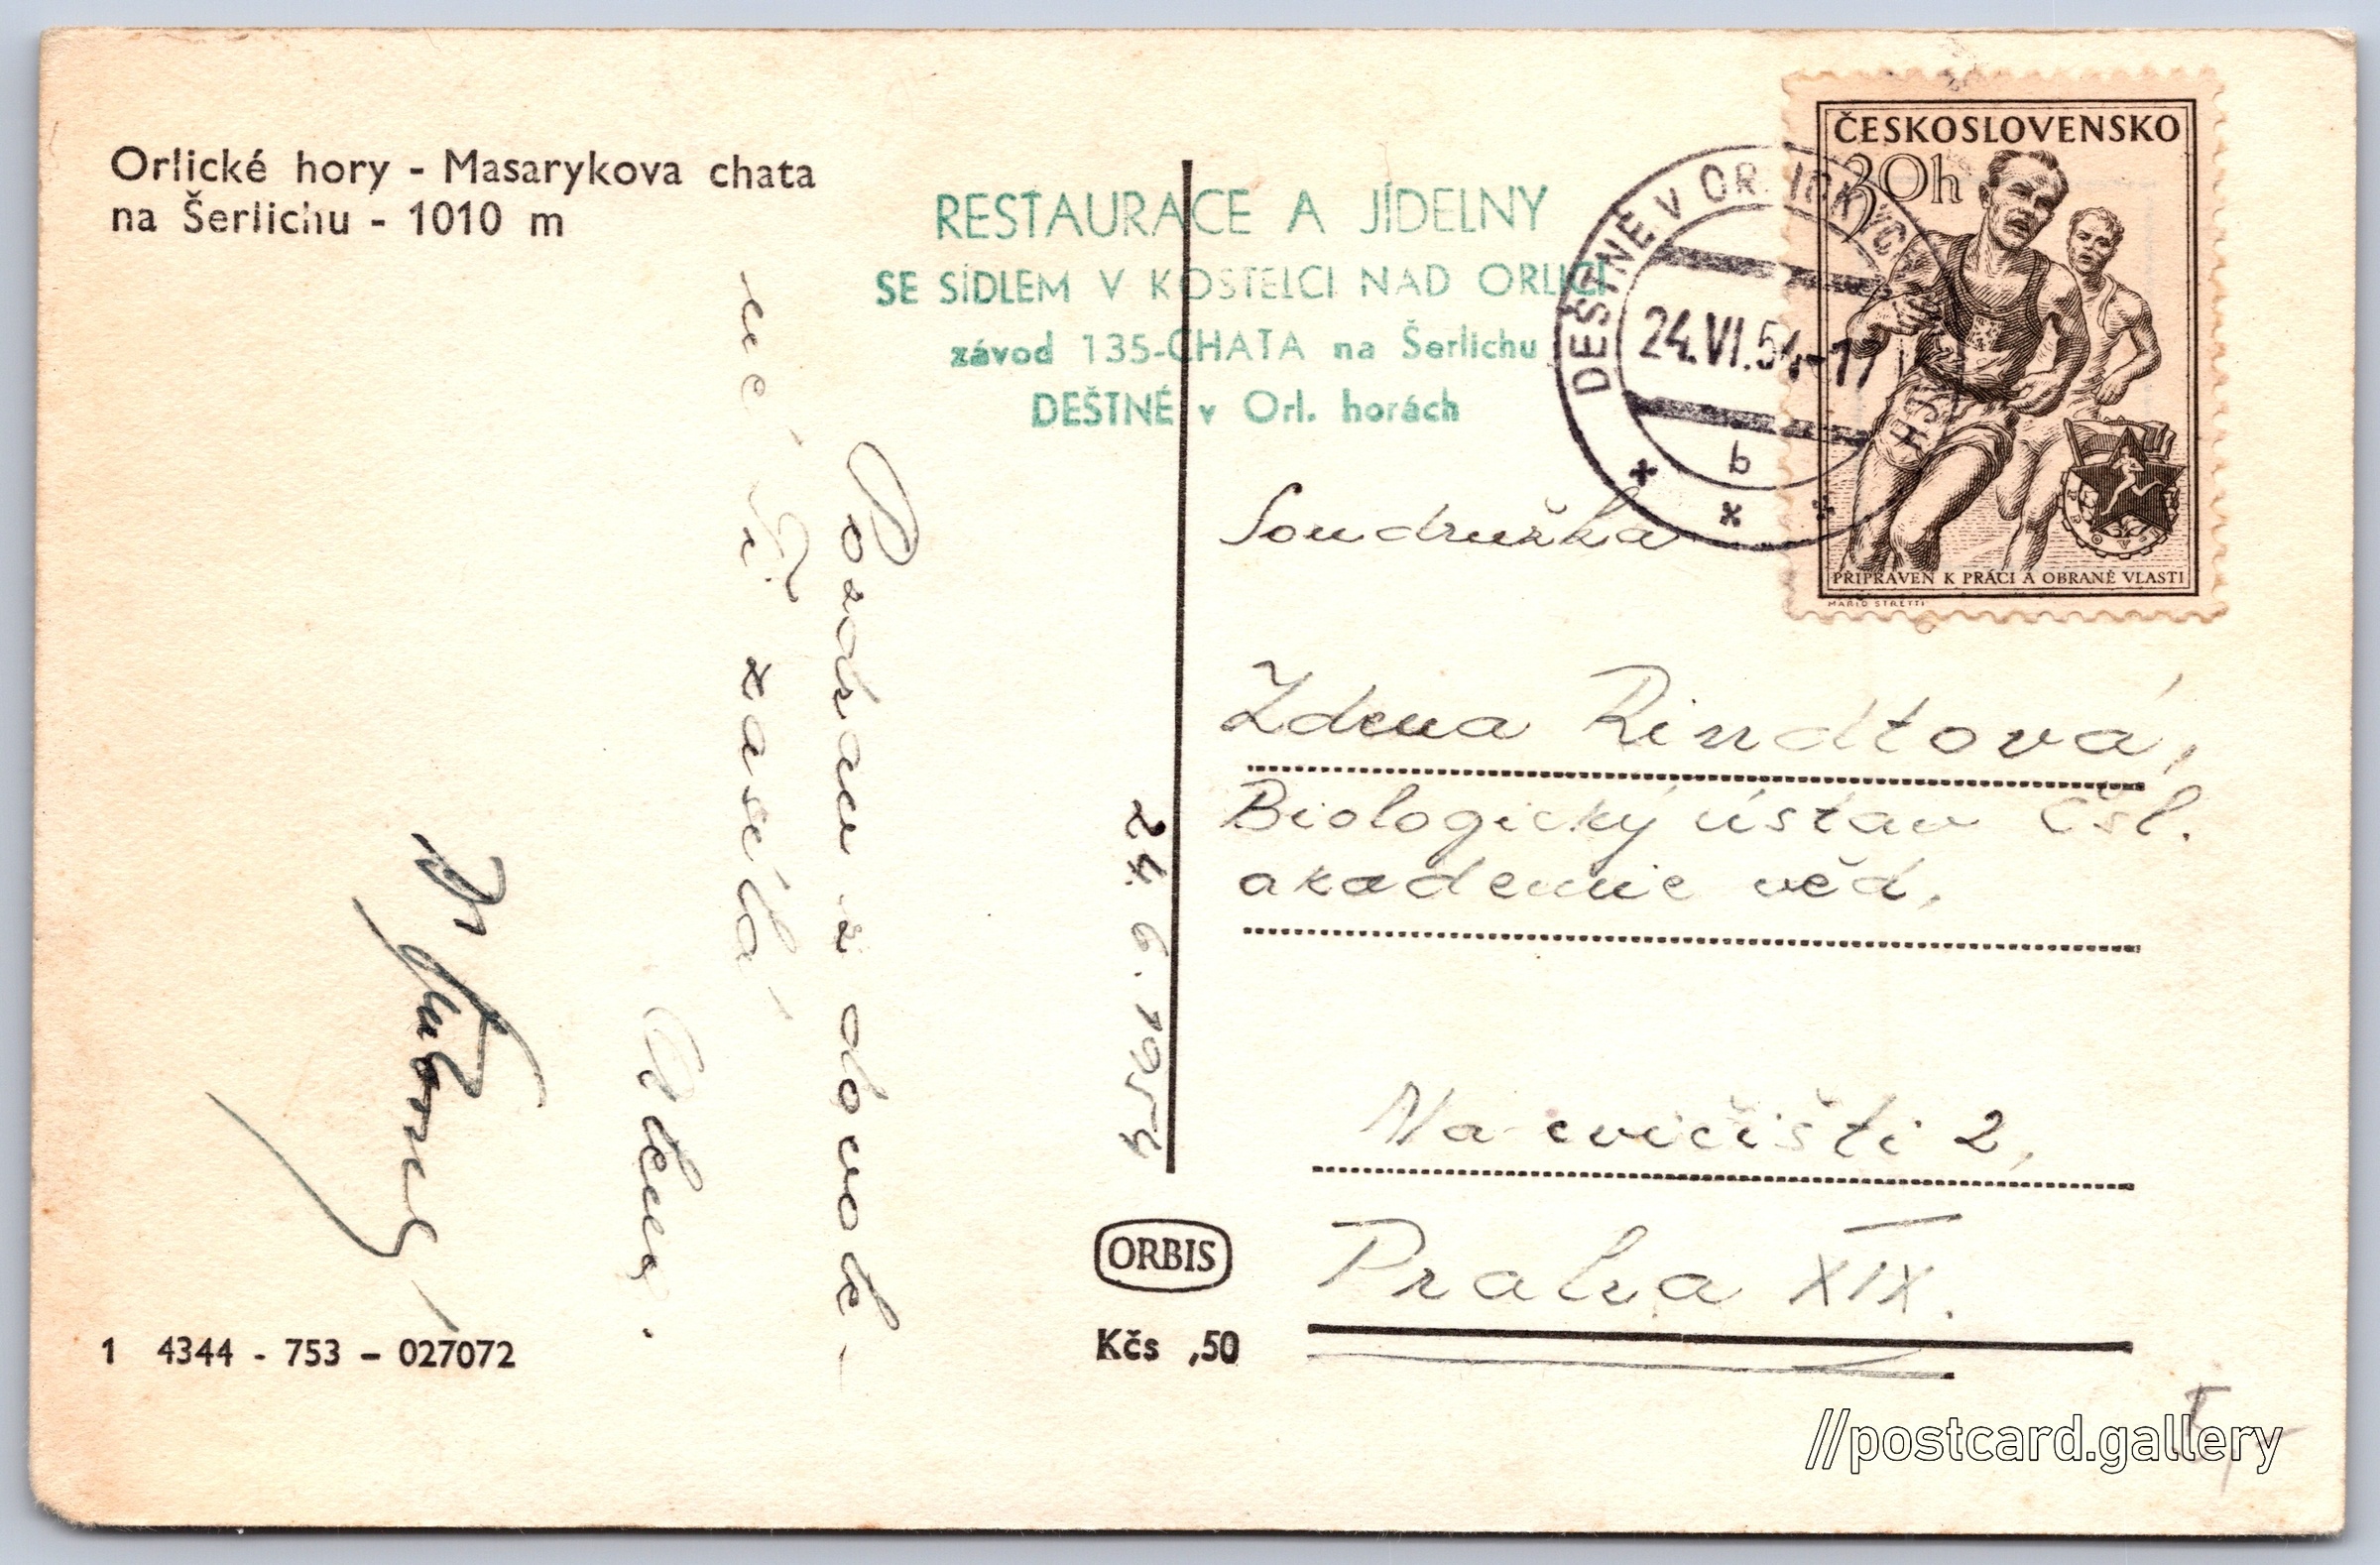 Orlické hory - Masarykova chata
na Šerlichu - 1010 m
RESTAURACE A JÍDELNY
SE SÍDLEM V KOSTELCI NAD ORLICÍ
závod 135-CHATA na Šerlichu
DEŠTNÉ v Orl. horách
DEŠTNÉ V ORLICKÝCH HOR
24.VI.54-17
b
ČESKOSLOVENSKO
30h
PŘIPRAVEN K PRÁCI A OBRANĚ VLASTI
MARIO STRETTI
24. 6. 1954
Pozdrav z dovole-
né Ti zasílá
Soudružka
Zdena Rindtová,
Biologický ústav Čsl.
akademie věd,
Na cvičišti 2,
Praha XIX.
ORBIS
Kčs ,50
1 4344 - 753 - 027072
//postcard.gallery